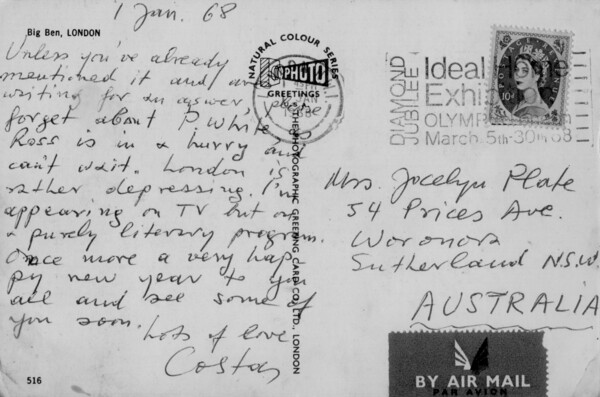 1 Jan. 68
Big Ben, LONDON
Unless you've already
mentioned it and are
waiting for an answer please
forget about P. White
Ross is in a hurry and
can't wait. London is
rather depressing. I'm
appearing on TV but on
a purely literary program.
Once more a very hap
py new year to you
all and see some of
you soon.
Lots of love
Costas
516
NATURAL COLOUR SERIES
PHOTO
GREETINGS
THE PHOTOGRAPHIC GREETING CARD CO., LTD., LONDON
DIAMOND
JUBILEE
Ideal Home
Exhi
OLYMP
March 5th-30th 68
Mrs. Jocelyn Plate
54 Prices Ave.
Woronora
Sutherland N.S.W.
AUSTRALIA
BY AIR MAIL
PAR AVION